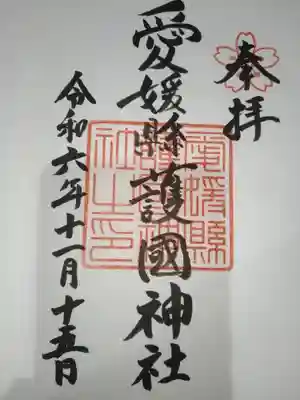 奉拝
愛媛縣護國神社
愛媛縣
護國神
社之印
令和六年十一月十五日